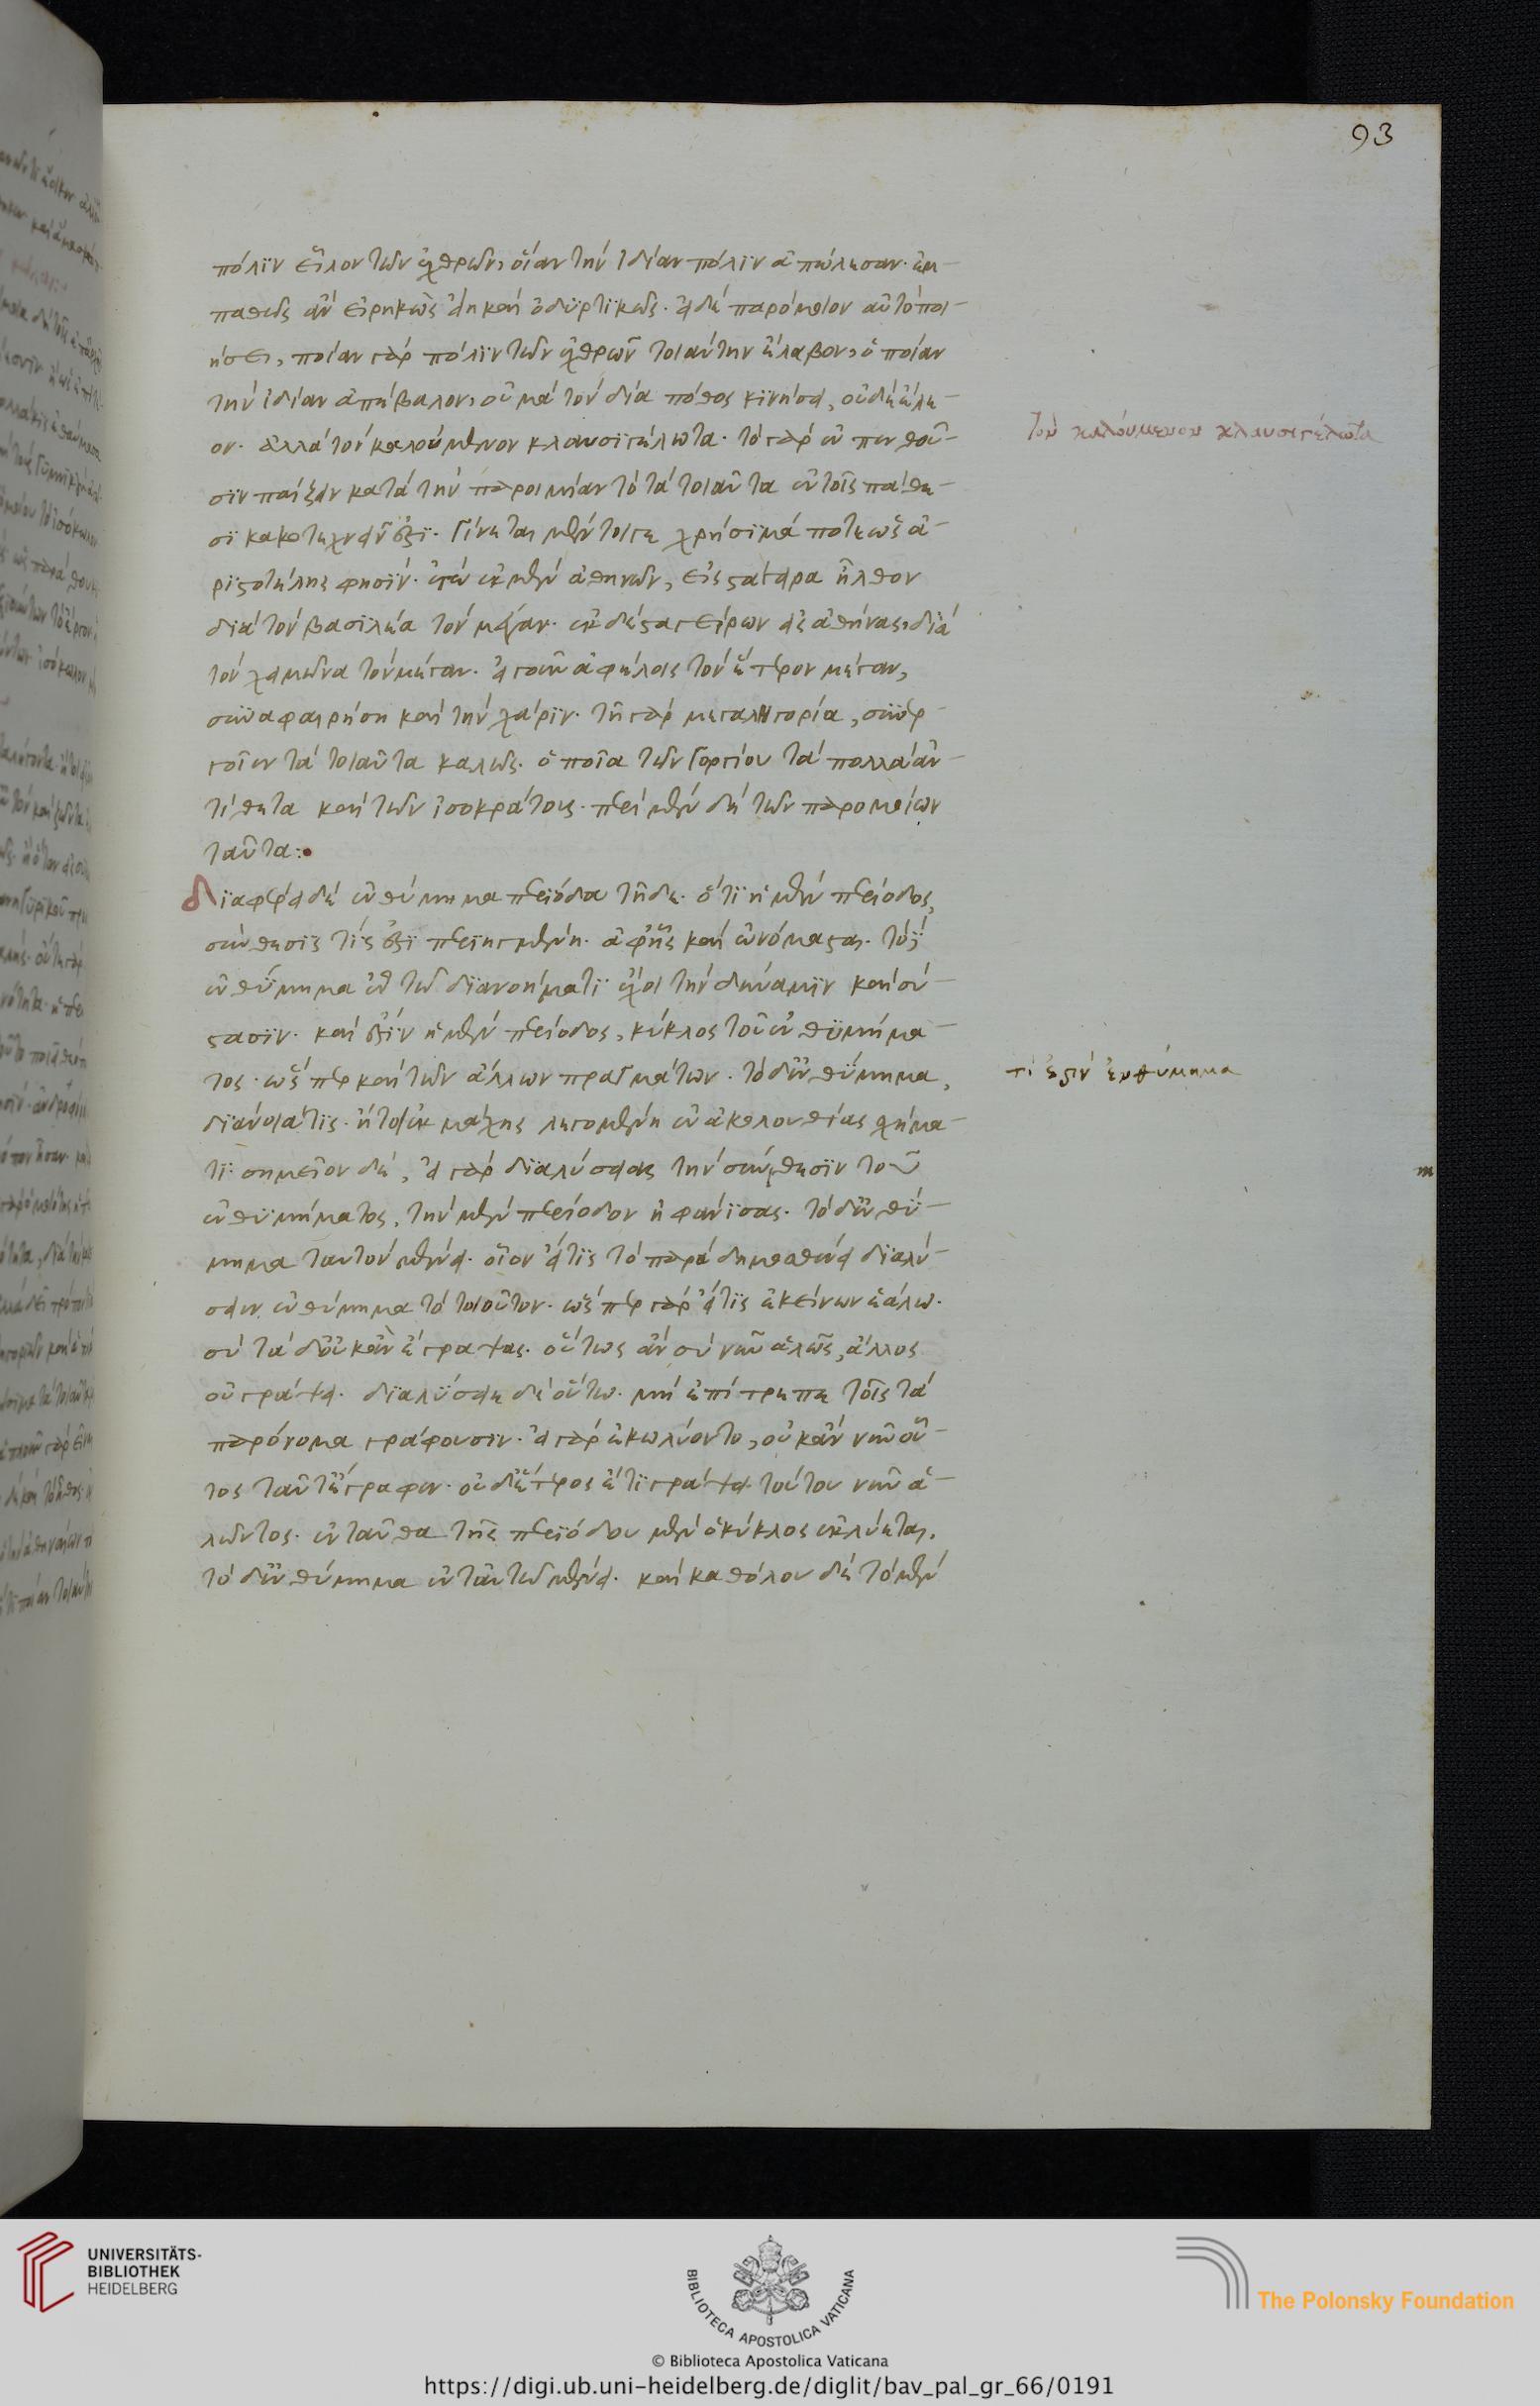 93
πόλϊν εἷλον τῶν ἐχθρῶν, οἵαν τὴν ἰδίαν πόλϊν ἀπώλεσαν. ἐμ-
παθῶς ἂν εἰρηκὼς εἴη καὶ ὀδυρτϊκῶς. εἰ δὲ παρόμοιον αὐτὸ ποι-
ήσει, ποίαν γὰρ πόλϊν τῶν ἐχθρῶν τοιαύτην ἔλαβον, ὁποίαν
τὴν ἰδίαν ἀπέβαλον, οὐ μὰ τὸν δία πάθος κϊνήσει, οὐδὲ ἔλε-
ον. ἀλλὰ τὸν καλούμενον κλαυσϊγέλωτα. τὸ γὰρ ἐν πενθοῦ-
σϊν παίζειν κατὰ τὴν παροιμίαν τὸ τὰ τοιαῦτα ἐν τοῖς πάθε-
σϊ κακοτεχνεῖν ἐστϊ. γίνεται μέντοι γε χρήσϊμά ποτε ὡς ἀ-
ρϊστοτέλης φησϊν. ἐγὼ ἐκ μὲν ἀθηνῶν, εἰς στάγειρα ἦλθον
δϊὰ τὸν βασϊλέα τὸν μέγαν. ἐκ δὲ σταγείρων εἰς ἀθήνας, δϊὰ
τὸν χειμῶνα τὸν μέγαν. εἰ γοῦν ἀφέλοις τὸν ἕτερον μέγαν,
συναφαιρήση καὶ τὴν χάρϊν. τῆ γὰρ μεγαληγορία, συνερ-
γοῖεν τὰ τοιαῦτα κῶλα. ὁποῖα τῶν γοργίου τὰ πολλὰ ἀν-
τίθετα καὶ τῶν ἰσοκράτους. περὶ μὲν δὴ τῶν παρομοίων
ταῦτα:.
Δϊαφέρει δὲ ἐνθύμημα περϊόδου τῆδε. ὅτϊ ἡ μὲν περίοδος,
σύνθεσϊς τίς ἐστϊ περϊηγμένη. ἀφ' ἧς καὶ ὠνόμασται. τὸ δὲ
ἐνθύμημα ἐν τῶ δϊανοήματϊ ἔχει τὴν δύναμϊν καὶ σύ-
στασϊν. καὶ ἔστϊν ἡ μὲν περίοδος, κύκλος τοῦ ἐνθϋμήμα-
τος. ὥσπερ καὶ τῶν ἄλλων πραγμάτων. τὸ δ' ἐνθϋμημα,
δϊάνοιά τϊς. ἤτοι ἐκ μάχης λεγομένη ἐν ἀκολουθίας σχήμα-
τϊ. σημεῖον δέ, εἰ γὰρ δϊαλύσειας τὴν σύνθεσϊν τοῦ
ἐνθϋμήματος, τὴν μὲν περίοδον ἠφάνϊσας. τὸ δ' ἐνθύ-
μημα ταυτὸν μένει. οἷον εἴ τϊς τὸ παρὰ δημοσθένει δϊαλύ-
σειεν ἐνθύμημα τὸ τοιοῦτον. ὥσπερ γὰρ εἴ τϊς ἐκείνων ἑάλω.
σὺ τάδ' οὐκ ἂν ἔγραψας. οὕτως ἂν σὺ νῦν ἁλῶς, ἄλλος
οὐ γράψει. δϊαλϋσειε δὲ οὕτω. μὴ ἐπίτρεπε τοῖς τὰ
παράνομα γράφουσιν. εἰ γὰρ ἐκωλύοντο, οὐκ ἂν νῦν οὗ-
τος ταῦτ' ἔγραφεν. οὐδ' ἕτερος ἔτϊ γράψει τούτου νῦν ἁ-
λῶντος. ἐνταῦθα τῆς περϊόδου μὲν ὁ κύκλος ἐκλέλυται,
τὸ δ' ἐνθύμημα ἐν ταυτῶ μένει. καὶ καθόλου δὲ τὸ μὲν
τὸν καλούμενον κλαυσιγέλωτα
τί ἐστιν ἐνθύμημα
UNIVERSITÄTS-
BIBLIOTHEK
HEIDELBERG
BIBLIOTECA APOSTOLICA VATICANA
The Polonsky Foundation
© Biblioteca Apostolica Vaticana
https://digi.ub.uni-heidelberg.de/diglit/bav_pal_gr_66/0191